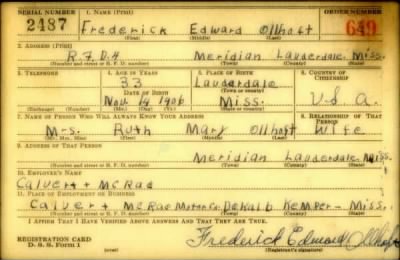 SERIAL NUMBER 1. NAME (Print) ORDER NUMBER
2487 Frederick Edward Ollhoft 649
(First) (Middle) (Last)
2. ADDRESS (Print)
R.F.D.4 Meridian Lauderdale Miss.
(Number and street or R. F. D. number) (Town) (County) (State)
3. TELEPHONE 4. AGE IN YEARS 5. PLACE OF BIRTH 6. COUNTRY OF CITIZENSHIP
33 Lauderdale
DATE OF BIRTH
Nov. 14 1906 Miss. U.S.A.
(Exchange) (Number) (Mo.) (Day) (Yr.) (State or country)
7. NAME OF PERSON WHO WILL ALWAYS KNOW YOUR ADDRESS 8. RELATIONSHIP OF THAT PERSON
Mrs. Ruth Mary Ollhoft Wife
(Mr., Mrs., Miss) (First) (Middle) (Last)
9. ADDRESS OF THAT PERSON
Meridian Lauderdale, Miss.
(Number and street or R. F. D. number) (Town) (County) (State)
10. EMPLOYER'S NAME
Calvert + McRae
11. PLACE OF EMPLOYMENT OR BUSINESS
Calvert McRae Motor Co. DeKalb Kemper - Miss.
(Number and street or R. F. D. number) (Town) (County) (State)
I AFFIRM THAT I HAVE VERIFIED ABOVE ANSWERS AND THAT THEY ARE TRUE.
REGISTRATION CARD
D. S. S. Form 1 Frederick Edward Ollhoft